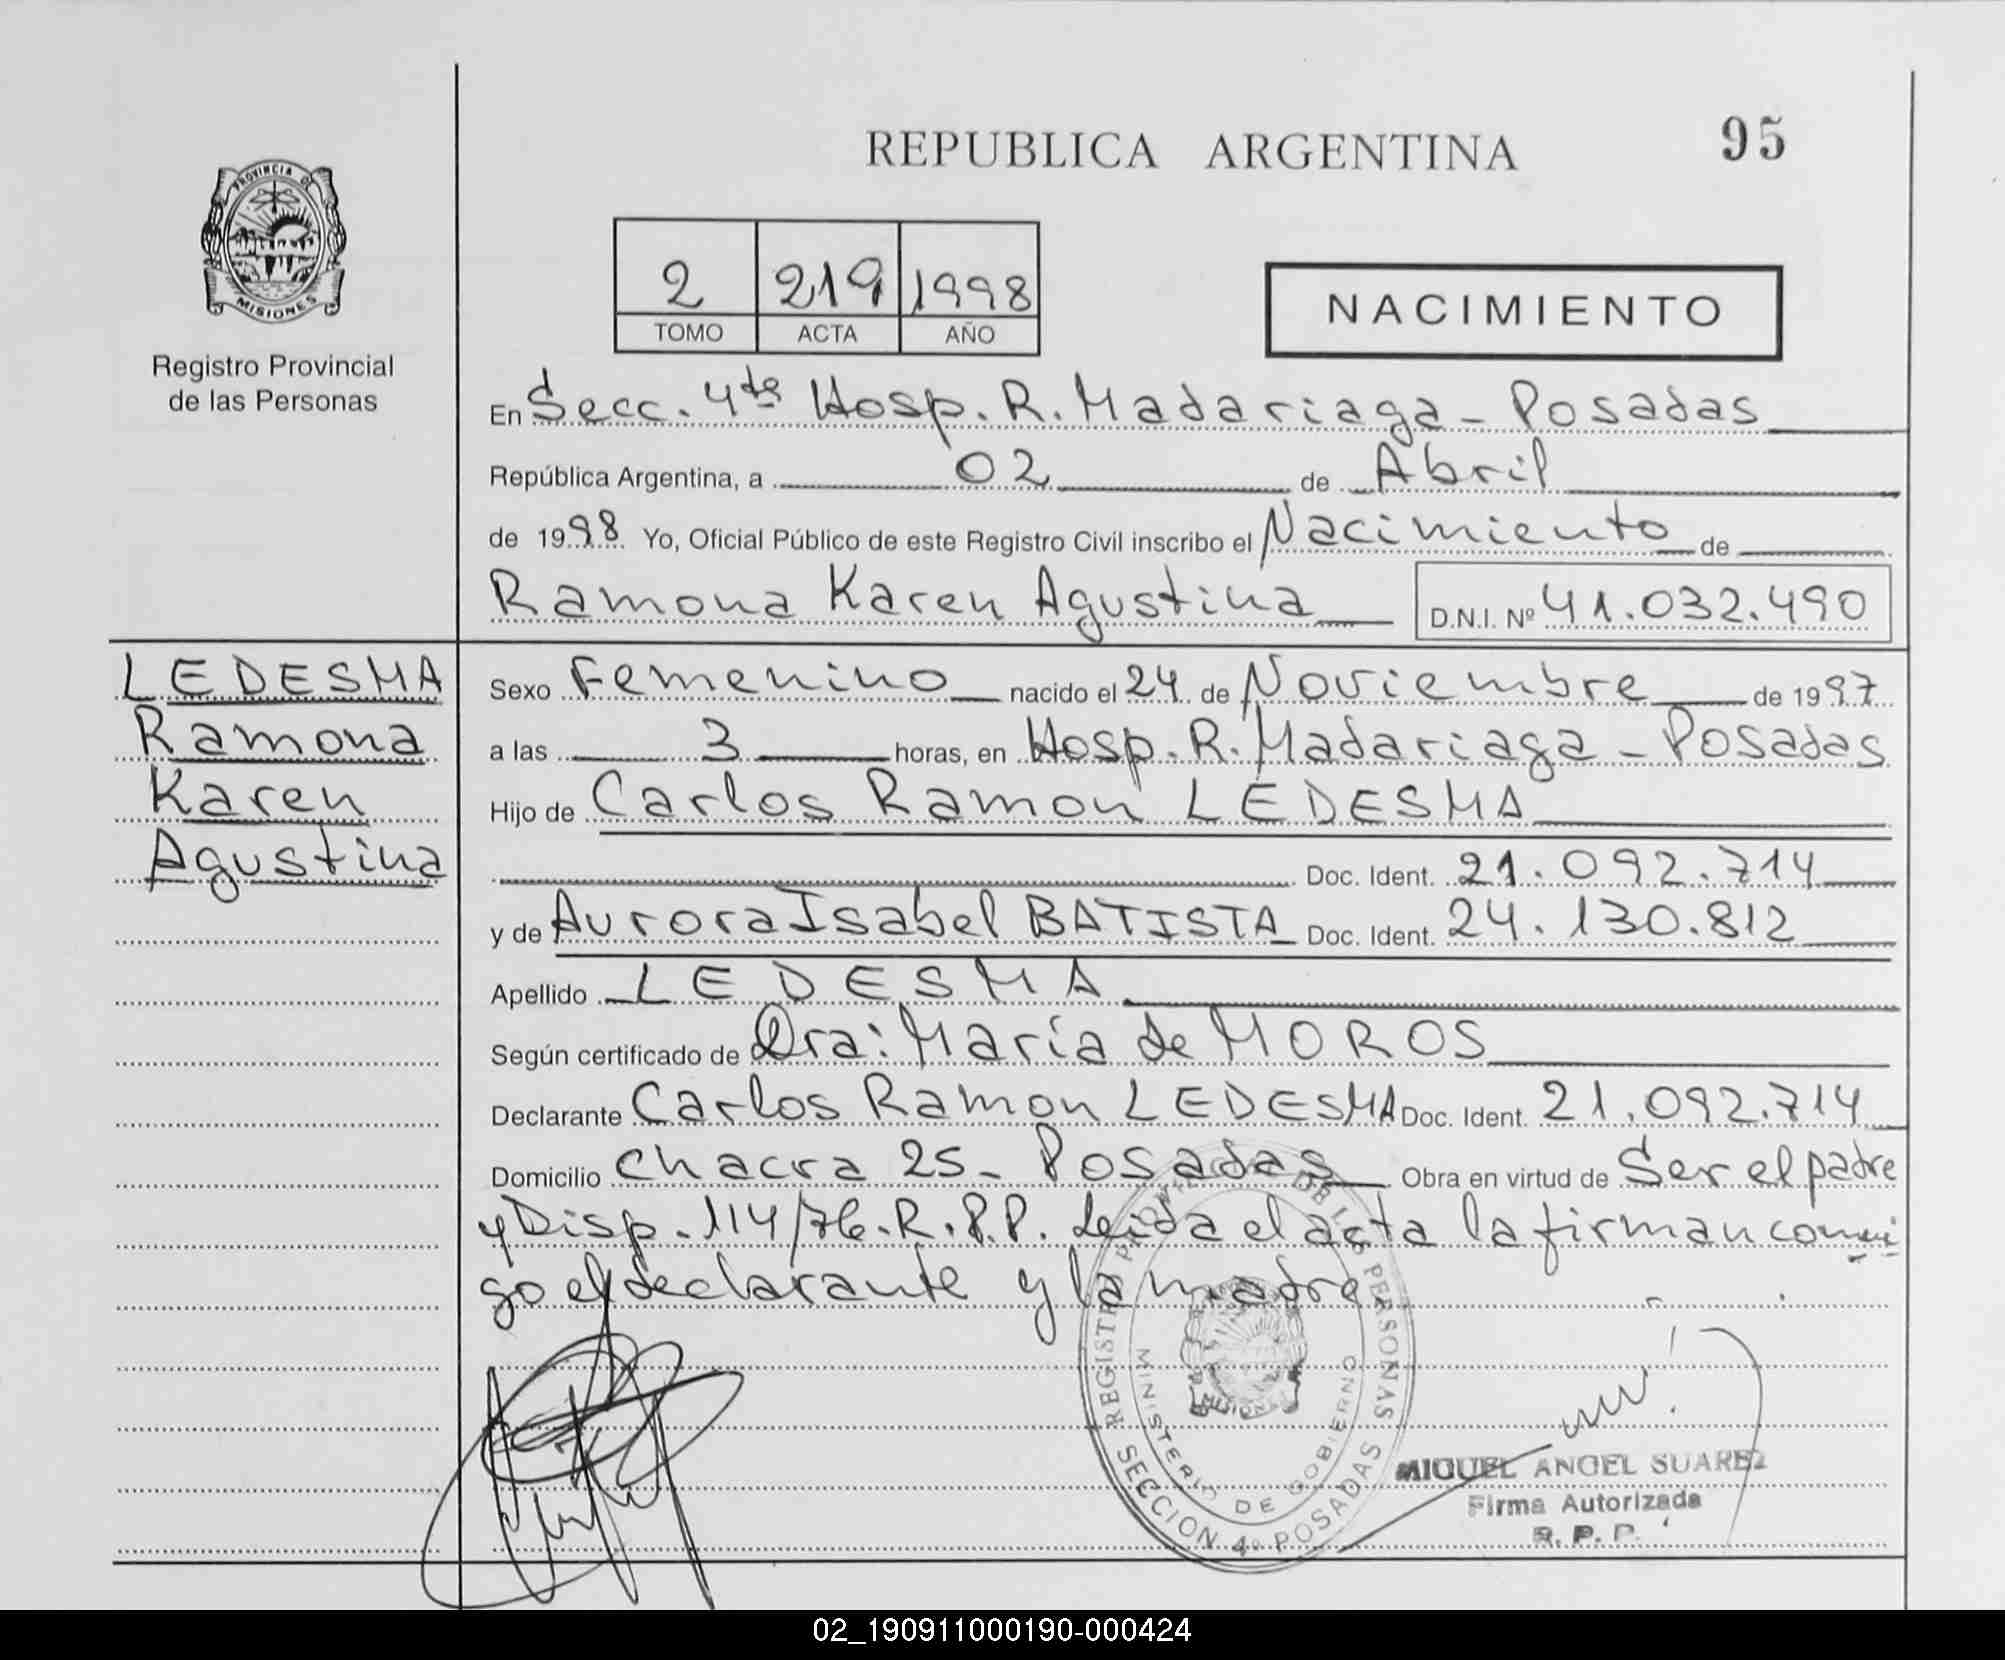 PROVINCIA DE
MISIONES
Registro Provincial
de las Personas
REPUBLICA ARGENTINA
95
2 219 1998
TOMO ACTA AÑO
NACIMIENTO
En Secc. 4ta Hosp. R. Madariaga - Posadas
República Argentina, a 02 de Abril
de 1998 Yo, Oficial Público de este Registro Civil inscribo el Nacimiento de
Ramona Karen Agustina D.N.I. Nº 41.032.490
LEDESMA
Ramona
Karen
Agustina
Sexo Femenino nacido el 24 de Noviembre de 1997
a las 3 horas, en Hosp. R. Madariaga - Posadas
Hijo de Carlos Ramon LEDESMA
Doc. Ident. 21.092.714
y de Aurora Isabel BATISTA Doc. Ident. 24.130.812
Apellido LEDESMA
Según certificado de Dra: María de MOROS
Declarante Carlos Ramon LEDESMA Doc. Ident. 21.092.714
Domicilio chacra 25 - Posadas Obra en virtud de Ser el padre
y Disp. 114/76. R.P.P. Leida el acta la firman conmi
go el declarante y la madre
REGISTRO PROVINCIAL DE LAS PERSONAS
MINISTERIO DE GOBIERNO
SECCION 4º POSADAS
MIGUEL ANGEL SUAREZ
Firma Autorizada
R. P. P.
02_190911000190-000424